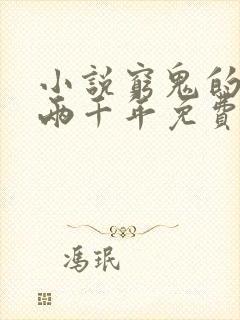 小說窮鬼的
兩千年免費
馮珉